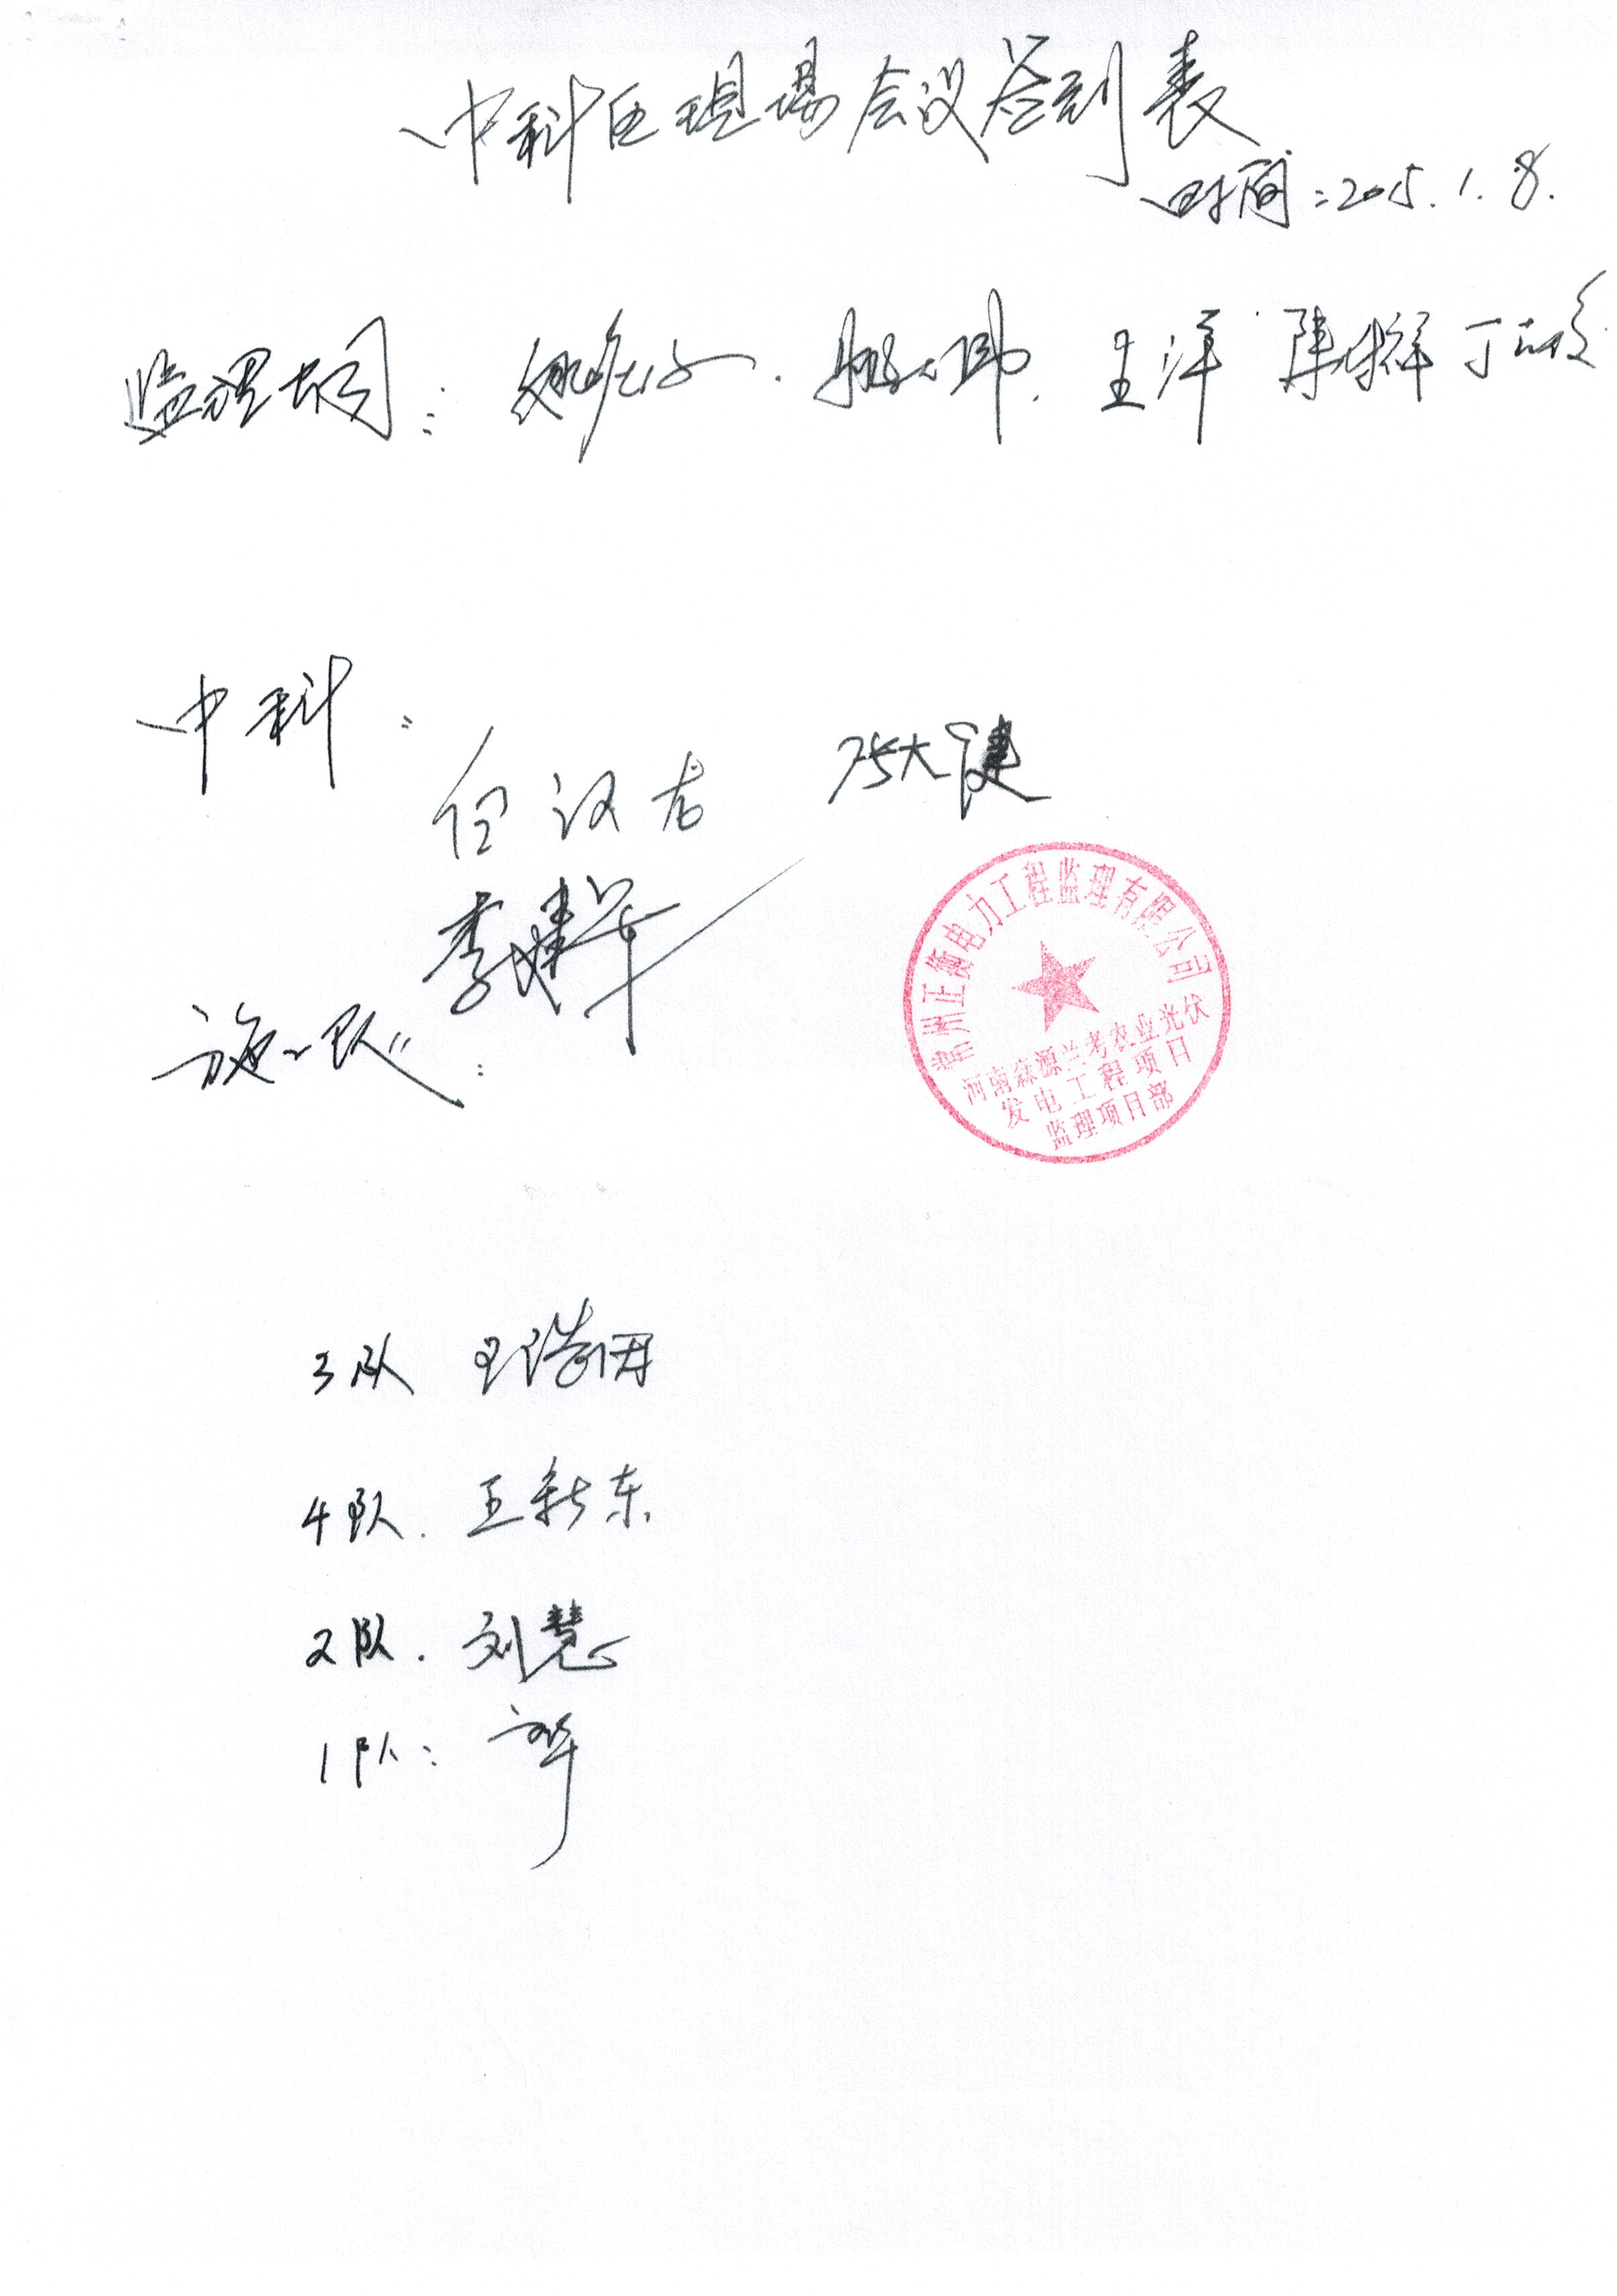 中科区现场会议签到表
时间:2015.1.8.
监理公司: 王洋 陈祥 丁
中科:
任汉右 张大健
李建华
常州正衡电力工程监理有限公司
河南森源兰考农业光伏
发电工程项目
监理项目部
施工队:
3队 王浩
4队. 王新东
2队. 刘慧
1队: